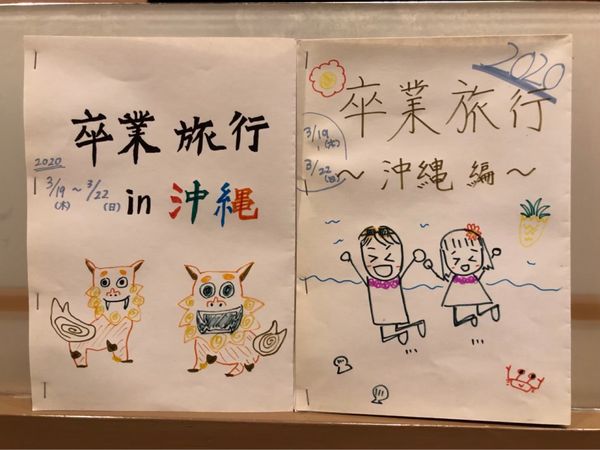 卒業旅行
2020
3/19(木)～3/22(日)
in 沖縄
2020
卒業旅行
3/19(木)
～
3/22(日)
～沖縄編～